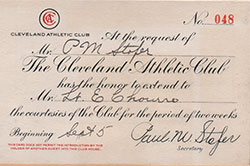 CAC
No 048
CLEVELAND ATHLETIC CLUB
At the request of
Mr. P M Stofer
The Cleveland Athletic Club
has the honor to extend to
Mr. Lt. C
the courtesies of the Club for the period of two weeks
Beginning Sept 5
Paul M Stofer
Secretary
THIS CARD DOES NOT PERMIT THE INTRODUCTION BY THE
HOLDER OF ANOTHER GUEST INTO THE CLUB ROOMS